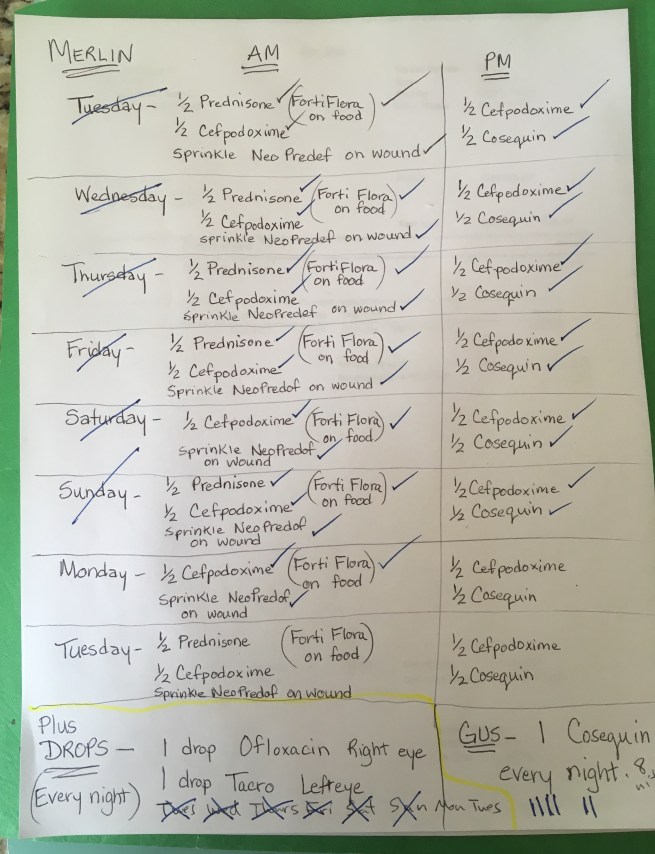 MERLIN AM PM
Tuesday - 1/2 Prednisone (FortiFlora 1/2 Cefpodoxime
1/2 Cefpodoxime on food) 1/2 Cosequin
Sprinkle Neo Predef on wound
Wednesday - 1/2 Prednisone (Forti Flora 1/2 Cefpodoxime
1/2 Cefpodoxime on food) 1/2 Cosequin
sprinkle NeoPredef on wound
Thursday - 1/2 Prednisone (FortiFlora 1/2 Cefpodoxime
1/2 Cefpodoxime on food) 1/2 Cosequin
Sprinkle NeoPredef on wound
Friday - 1/2 Prednisone (Forti Flora 1/2 Cefpodoxime
1/2 Cefpodoxime on food) 1/2 Cosequin
Sprinkle NeoPredof on wound
Saturday - 1/2 Cefpodoxime (Forti Flora 1/2 Cefpodoxime
on food) 1/2 Cosequin
Sprinkle NeoPredof
on wound
Sunday - 1/2 Prednisone (Forti Flora 1/2 Cefpodoxime
1/2 Cefpodoxime on food) 1/2 Cosequin
Sprinkle NeoPredof
on wound
Monday - 1/2 Cefpodoxime (Forti Flora 1/2 Cefpodoxime
on food) 1/2 Cosequin
Sprinkle NeoPredof
on wound
Tuesday - 1/2 Prednisone (Forti Flora 1/2 Cefpodoxime
1/2 Cefpodoxime on food) 1/2 Cosequin
Sprinkle NeoPredof on wound
Plus
DROPS - 1 drop Ofloxacin Right eye
(Every night) 1 drop Tacro Left eye
Tues Wed Thurs Fri Sat Sun Mon Tues
GUS - 1 Cosequin
every night. 8